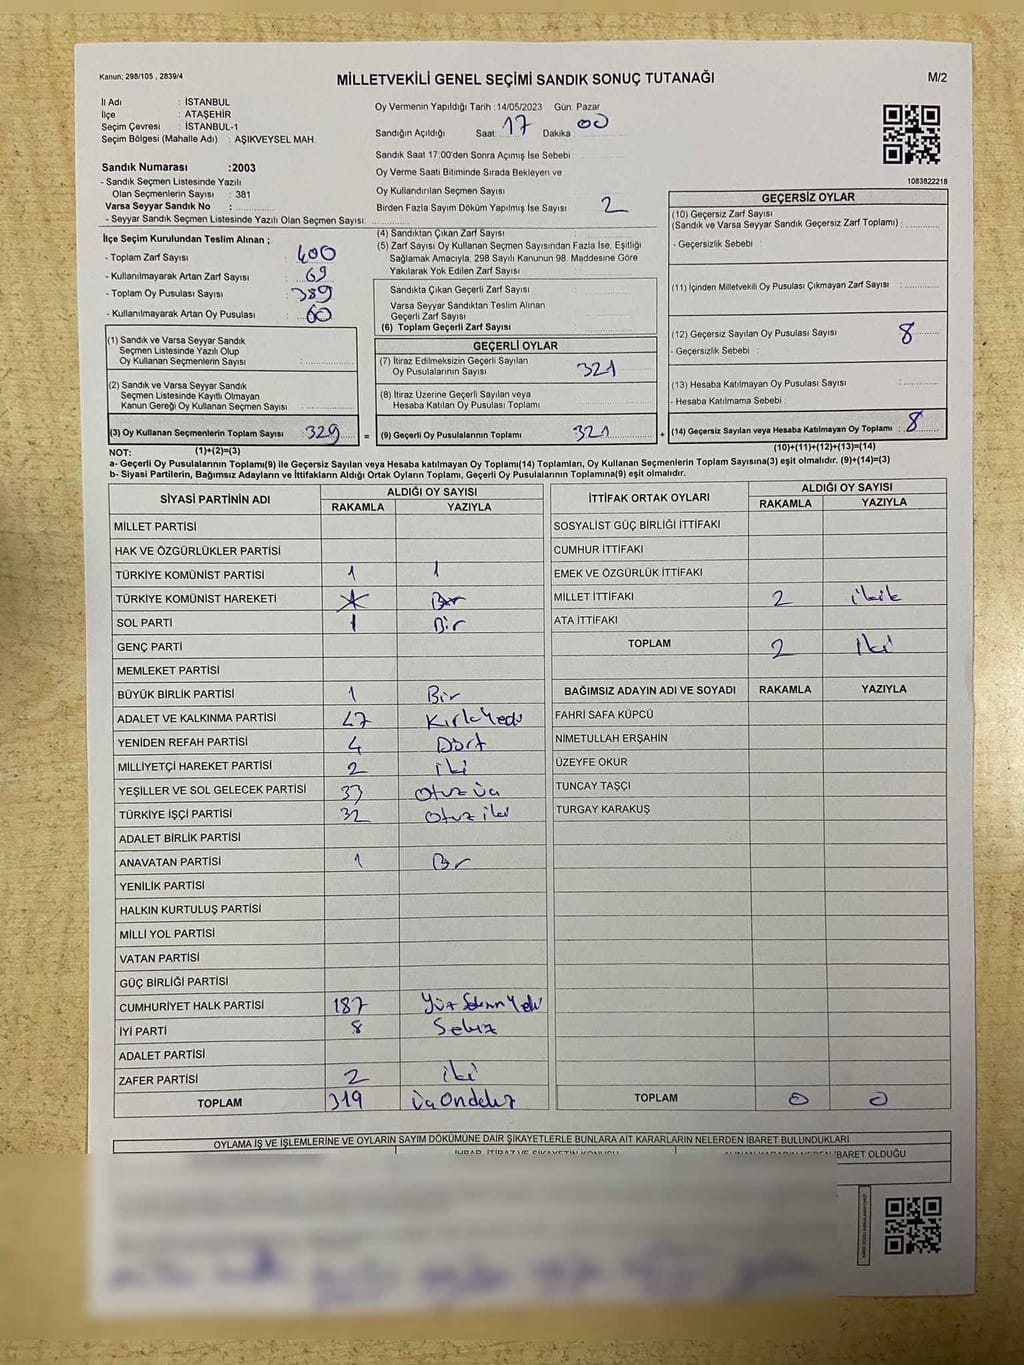 Kanun; 298/105 , 2839/4
MİLLETVEKİLİ GENEL SEÇİMİ SANDIK SONUÇ TUTANAĞI
M/2
İl Adı : İSTANBUL
İlçe : ATAŞEHİR
Seçim Çevresi : İSTANBUL-1
Seçim Bölgesi (Mahalle Adı) : AŞIKVEYSEL MAH.
Oy Vermenin Yapıldığı Tarih :14/05/2023 Gün: Pazar
Sandığın Açıldığı Saat: 17 Dakika : 00
Sandık Saat 17:00'den Sonra Açımış İse Sebebi :
Oy Verme Saati Bitiminde Sırada Bekleyen ve
Oy Kullandırılan Seçmen Sayısı :
Birden Fazla Sayım Döküm Yapılmış İse Sayısı : 2
1083822218
Sandık Numarası :2003
- Sandık Seçmen Listesinde Yazılı
Olan Seçmenlerin Sayısı : 381
Varsa Seyyar Sandık No :
- Seyyar Sandık Seçmen Listesinde Yazılı Olan Seçmen Sayısı:
İlçe Seçim Kurulundan Teslim Alınan ;
- Toplam Zarf Sayısı : 400
- Kullanılmayarak Artan Zarf Sayısı : 69
- Toplam Oy Pusulası Sayısı : 389
- Kullanılmayarak Artan Oy Pusulası : 60
(1) Sandık ve Varsa Seyyar Sandık
Seçmen Listesinde Yazılı Olup
Oy Kullanan Seçmenlerin Sayısı :
(2) Sandık ve Varsa Seyyar Sandık
Seçmen Listesinde Kayıtlı Olmayan
Kanun Gereği Oy Kullanan Seçmen Sayısı :
(3) Oy Kullanan Seçmenlerin Toplam Sayısı : 329 =
(1)+(2)=(3)
(4) Sandıktan Çıkan Zarf Sayısı :
(5) Zarf Sayısı Oy Kullanan Seçmen Sayısından Fazla İse, Eşitliği
Sağlamak Amacıyla; 298 Sayılı Kanunun 98. Maddesine Göre
Yakılarak Yok Edilen Zarf Sayısı :
Sandıkta Çıkan Geçerli Zarf Sayısı :
Varsa Seyyar Sandıktan Teslim Alınan
Geçerli Zarf Sayısı :
(6) Toplam Geçerli Zarf Sayısı :
GEÇERLİ OYLAR
(7) İtiraz Edilmeksizin Geçerli Sayılan
Oy Pusulalarının Sayısı : 321
(8) İtiraz Üzerine Geçerli Sayılan veya
Hesaba Katılan Oy Pusulası Toplamı :
(9) Geçerli Oy Pusulalarının Toplamı : 321 +
GEÇERSİZ OYLAR
(10) Geçersiz Zarf Sayısı
(Sandık ve Varsa Seyyar Sandık Geçersiz Zarf Toplamı) :
- Geçersizlik Sebebi :
(11) İçinden Milletvekili Oy Pusulası Çıkmayan Zarf Sayısı :
(12) Geçersiz Sayılan Oy Pusulası Sayısı : 8
- Geçersizlik Sebebi :
(13) Hesaba Katılmayan Oy Pusulası Sayısı :
- Hesaba Katılmama Sebebi :
(14) Geçersiz Sayılan veya Hesaba Katılmayan Oy Toplamı : 8
(10)+(11)+(12)+(13)=(14)
NOT:
a- Geçerli Oy Pusulalarının Toplamı(9) ile Geçersiz Sayılan veya Hesaba katılmayan Oy Toplamı(14) Toplamları, Oy Kullanan Seçmenlerin Toplam Sayısına(3) eşit olmalıdır. (9)+(14)=(3)
b- Siyasi Partilerin, Bağımsız Adayların ve İttifakların Aldığı Ortak Oyların Toplamı, Geçerli Oy Pusulalarının Toplamına(9) eşit olmalıdır.
SİYASİ PARTİNİN ADI ALDIĞI OY SAYISI
RAKAMLA YAZIYLA
MİLLET PARTİSİ
HAK VE ÖZGÜRLÜKLER PARTİSİ
TÜRKİYE KOMÜNİST PARTİSİ 1 1
TÜRKİYE KOMÜNİST HAREKETİ
SOL PARTİ 1 Bir
GENÇ PARTİ
MEMLEKET PARTİSİ
BÜYÜK BİRLİK PARTİSİ 1 Bir
ADALET VE KALKINMA PARTİSİ 47 Kırk Yedi
YENİDEN REFAH PARTİSİ 4 Dört
MİLLİYETÇİ HAREKET PARTİSİ 2 iki
YEŞİLLER VE SOL GELECEK PARTİSİ 33 Otuz üç
TÜRKİYE İŞÇİ PARTİSİ 32 Otuz iki
ADALET BİRLİK PARTİSİ
ANAVATAN PARTİSİ 1 Bir
YENİLİK PARTİSİ
HALKIN KURTULUŞ PARTİSİ
MİLLİ YOL PARTİSİ
VATAN PARTİSİ
GÜÇ BİRLİĞİ PARTİSİ
CUMHURİYET HALK PARTİSİ 187 Yüz Seksen Yedi
İYİ PARTİ 8 Sekiz
ADALET PARTİSİ
ZAFER PARTİSİ 2 iki
TOPLAM 319 üç On dokuz
İTTİFAK ORTAK OYLARI ALDIĞI OY SAYISI
RAKAMLA YAZIYLA
SOSYALİST GÜÇ BİRLİĞİ İTTİFAKI
CUMHUR İTTİFAKI
EMEK VE ÖZGÜRLÜK İTTİFAKI
MİLLET İTTİFAKI 2
ATA İTTİFAKI
TOPLAM 2 İki
BAĞIMSIZ ADAYIN ADI VE SOYADI RAKAMLA YAZIYLA
FAHRİ SAFA KÜPCÜ
NİMETULLAH ERŞAHİN
ÜZEYFE OKUR
TUNCAY TAŞÇI
TURGAY KARAKUŞ
TOPLAM 0 0
OYLAMA İŞ VE İŞLEMLERİNE VE OYLARIN SAYIM DÖKÜMÜNE DAİR ŞİKAYETLERLE BUNLARA AİT KARARLARIN NELERDEN İBARET BULUNDUKLARI
İHBAR, İTİRAZ VE ŞİKAYETİN KONUSU
ALINAN KARARIN NEDEN İBARET OLDUĞU